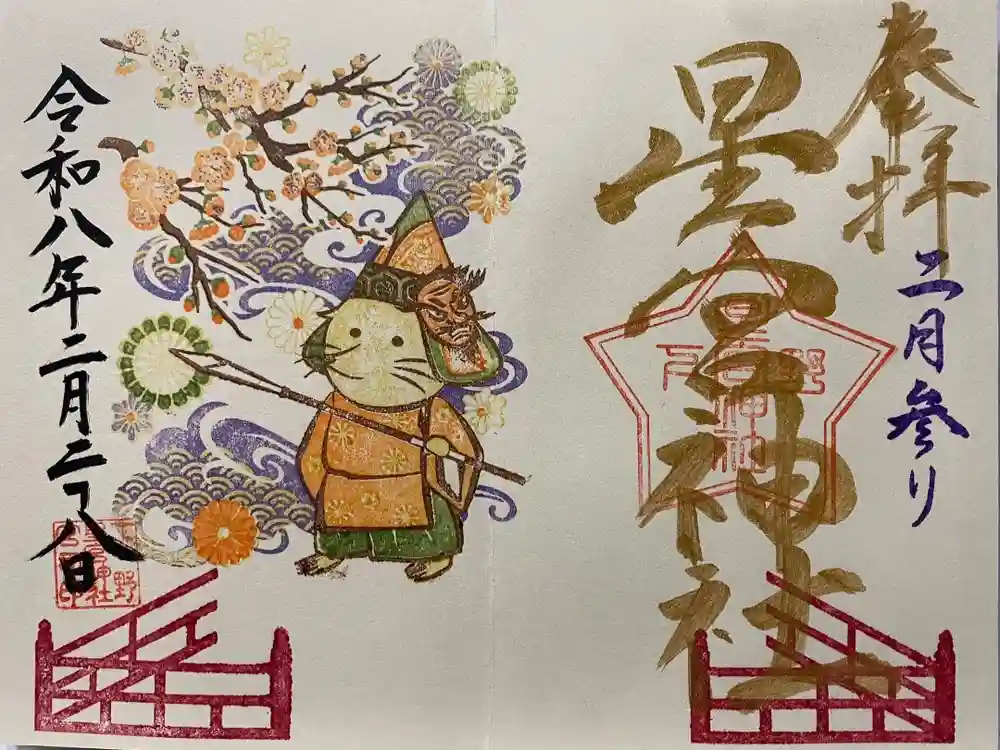 奉拝
二月参り
星宮神社
下野
星宮神社
令和八年二月二十八日